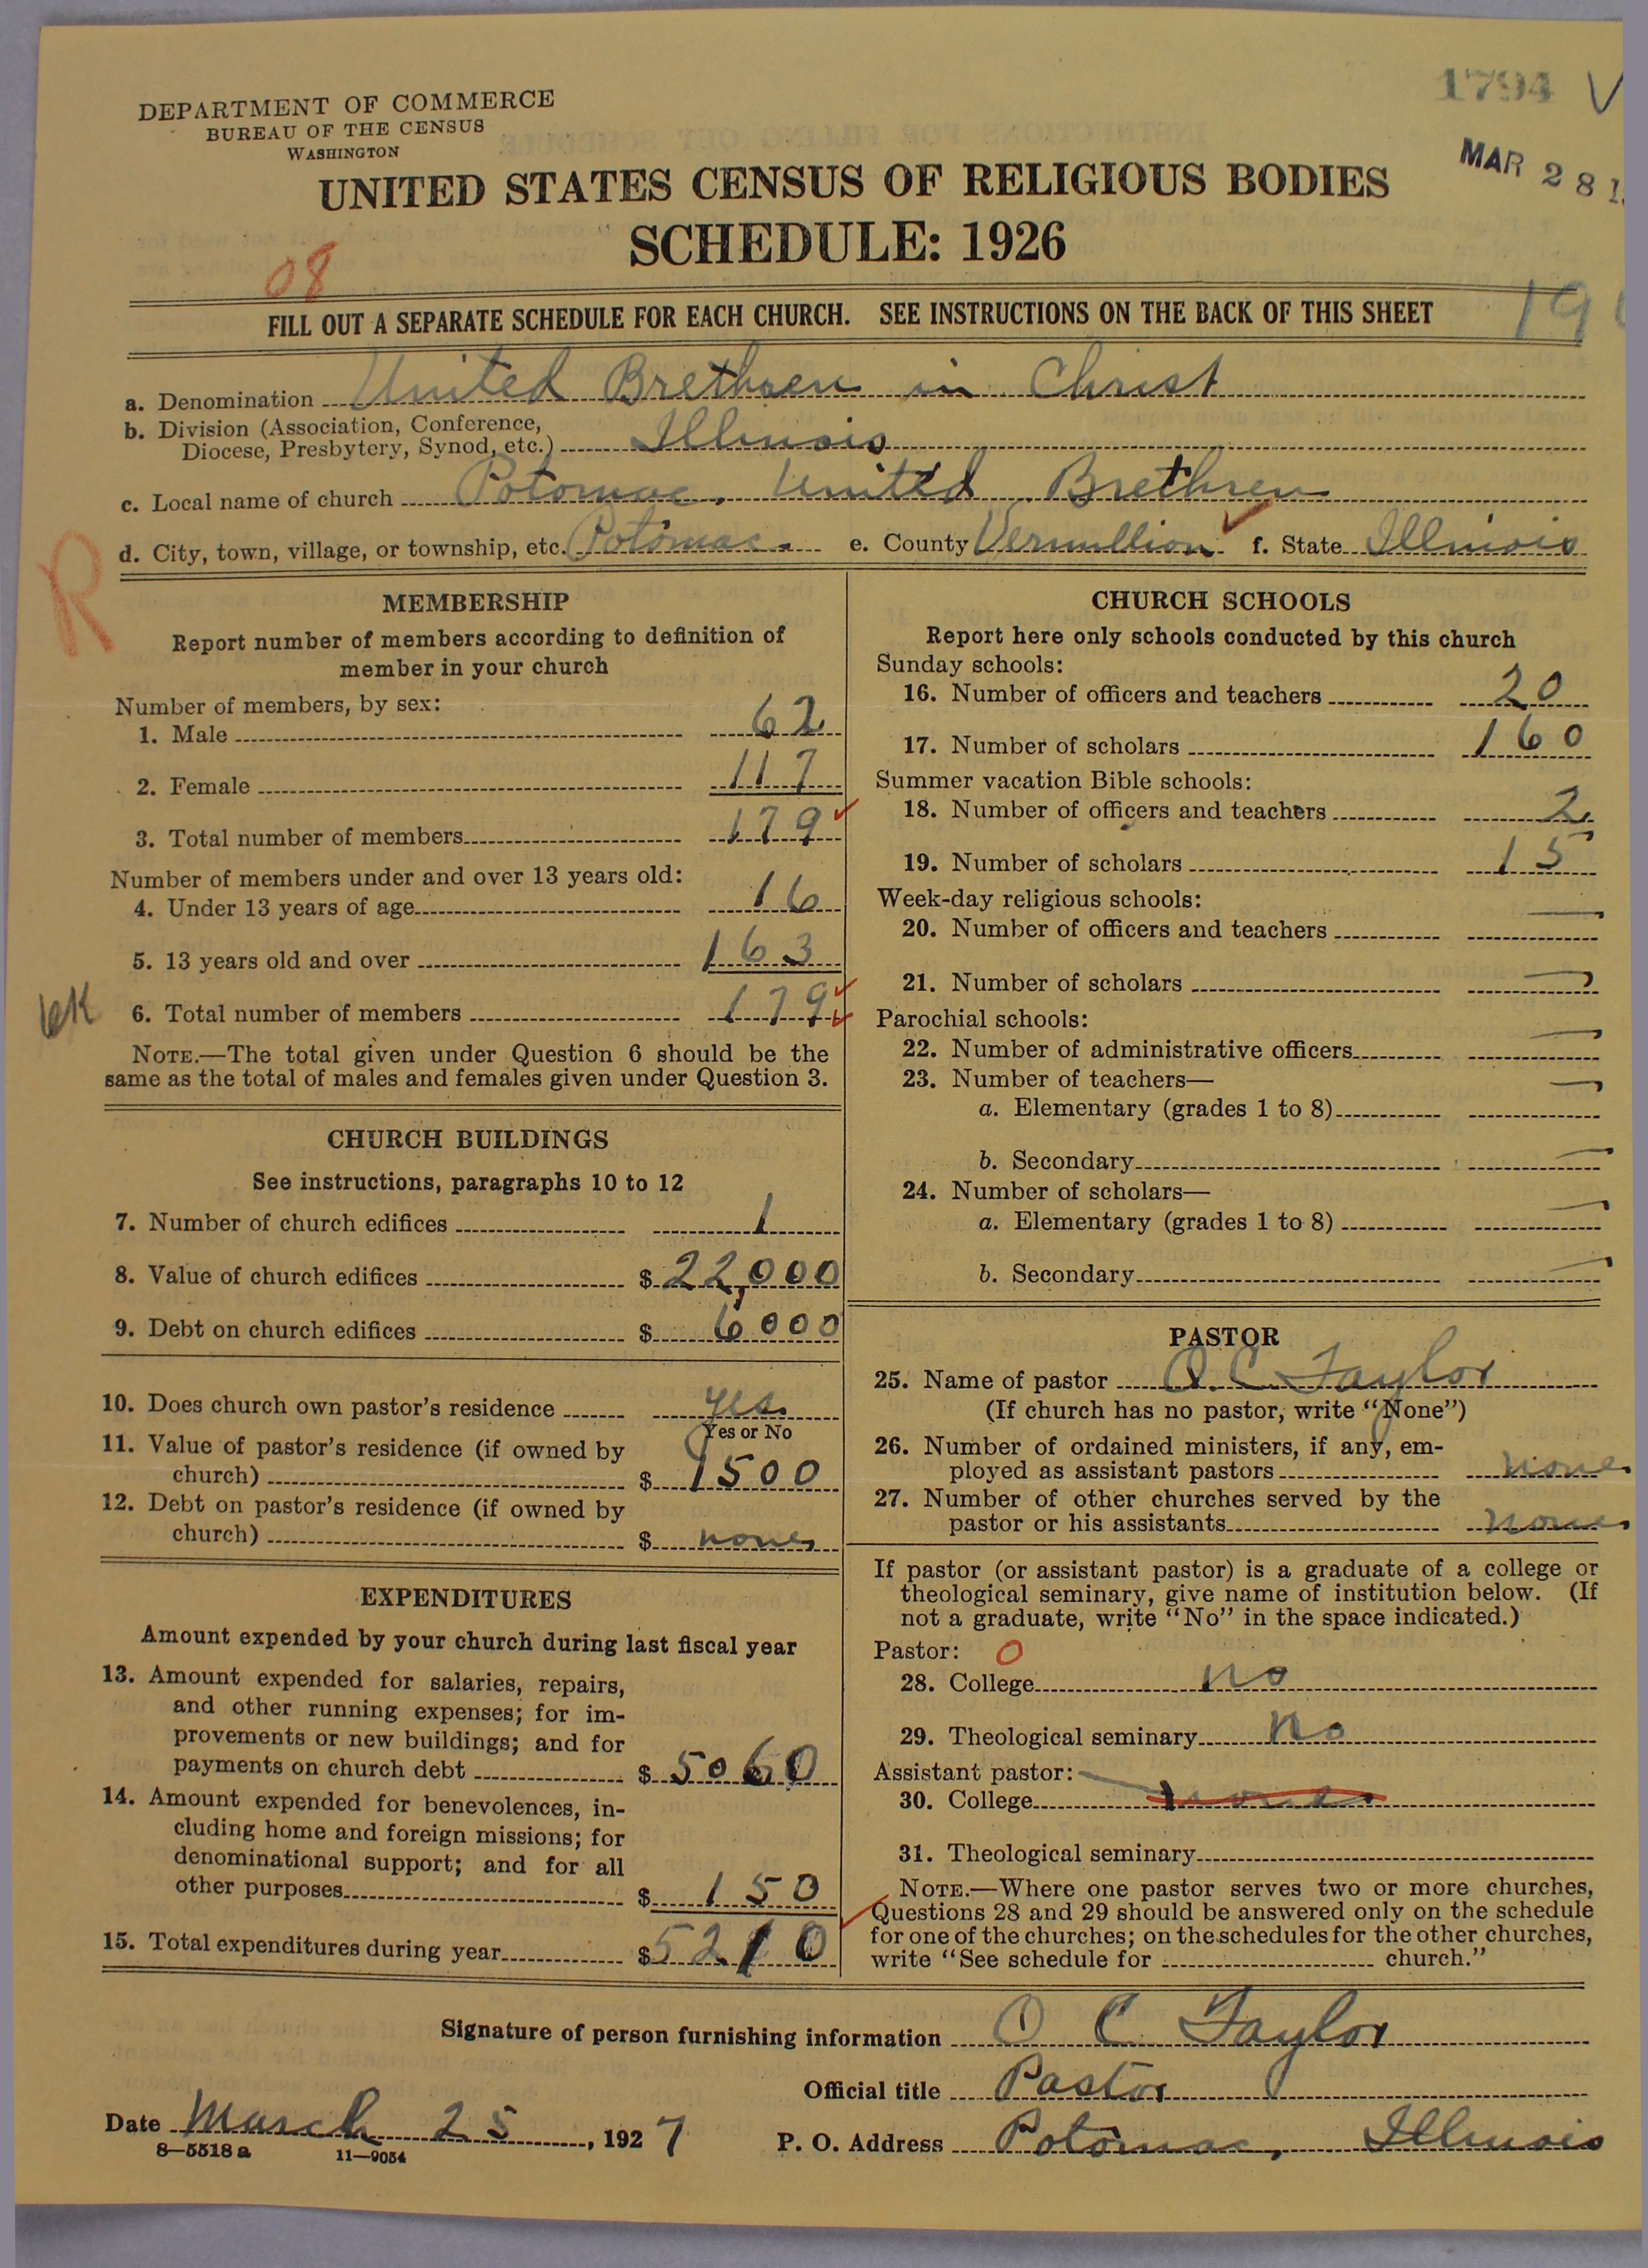 1794
DEPARTMENT OF COMMERCE
BUREAU OF THE CENSUS
WASHINGTON
MAR 28 1
UNITED STATES CENSUS OF RELIGIOUS BODIES
SCHEDULE: 1926
08
FILL OUT A SEPARATE SCHEDULE FOR EACH CHURCH. SEE INSTRUCTIONS ON THE BACK OF THIS SHEET
a. Denomination United Brethren in Christ
b. Division (Association, Conference,
Diocese, Presbytery, Synod, etc.) Illinois
c. Local name of church Potomac, United Brethren
d. City, town, village, or township, etc. Potomac. e. County Vermillion f. State Illinois
R
MEMBERSHIP
Report number of members according to definition of
member in your church
Number of members, by sex:
1. Male 62
2. Female 117
3. Total number of members 179
Number of members under and over 13 years old:
4. Under 13 years of age 16
5. 13 years old and over 163
6. Total number of members 179
NOTE.—The total given under Question 6 should be the
same as the total of males and females given under Question 3.
CHURCH BUILDINGS
See instructions, paragraphs 10 to 12
7. Number of church edifices 1
8. Value of church edifices $ 22,000
9. Debt on church edifices $ 6000
10. Does church own pastor's residence yes.
Yes or No
11. Value of pastor's residence (if owned by
church) $ 1500
12. Debt on pastor's residence (if owned by
church) $ none
EXPENDITURES
Amount expended by your church during last fiscal year
13. Amount expended for salaries, repairs,
and other running expenses; for im-
provements or new buildings; and for
payments on church debt $ 5060
14. Amount expended for benevolences, in-
cluding home and foreign missions; for
denominational support; and for all
other purposes $ 150
15. Total expenditures during year $ 5210
CHURCH SCHOOLS
Report here only schools conducted by this church
Sunday schools:
16. Number of officers and teachers 20
17. Number of scholars 160
Summer vacation Bible schools:
18. Number of officers and teachers 2
19. Number of scholars 15
Week-day religious schools:
20. Number of officers and teachers —
21. Number of scholars —
Parochial schools:
22. Number of administrative officers —
23. Number of teachers—
a. Elementary (grades 1 to 8) —
b. Secondary —
24. Number of scholars—
a. Elementary (grades 1 to 8) —
b. Secondary —
PASTOR
25. Name of pastor O. C. Taylor
(If church has no pastor, write "None")
26. Number of ordained ministers, if any, em-
ployed as assistant pastors none
27. Number of other churches served by the
pastor or his assistants none
If pastor (or assistant pastor) is a graduate of a college or
theological seminary, give name of institution below. (If
not a graduate, write "No" in the space indicated.)
Pastor: 0
28. College no
29. Theological seminary no
Assistant pastor:
30. College none
31. Theological seminary
NOTE.—Where one pastor serves two or more churches,
Questions 28 and 29 should be answered only on the schedule
for one of the churches; on the schedules for the other churches,
write "See schedule for church."
Signature of person furnishing information O C Taylor
Official title Pastor
Date March 25, 1927
P. O. Address Potomac, Illinois
8—5518 a 11—9054